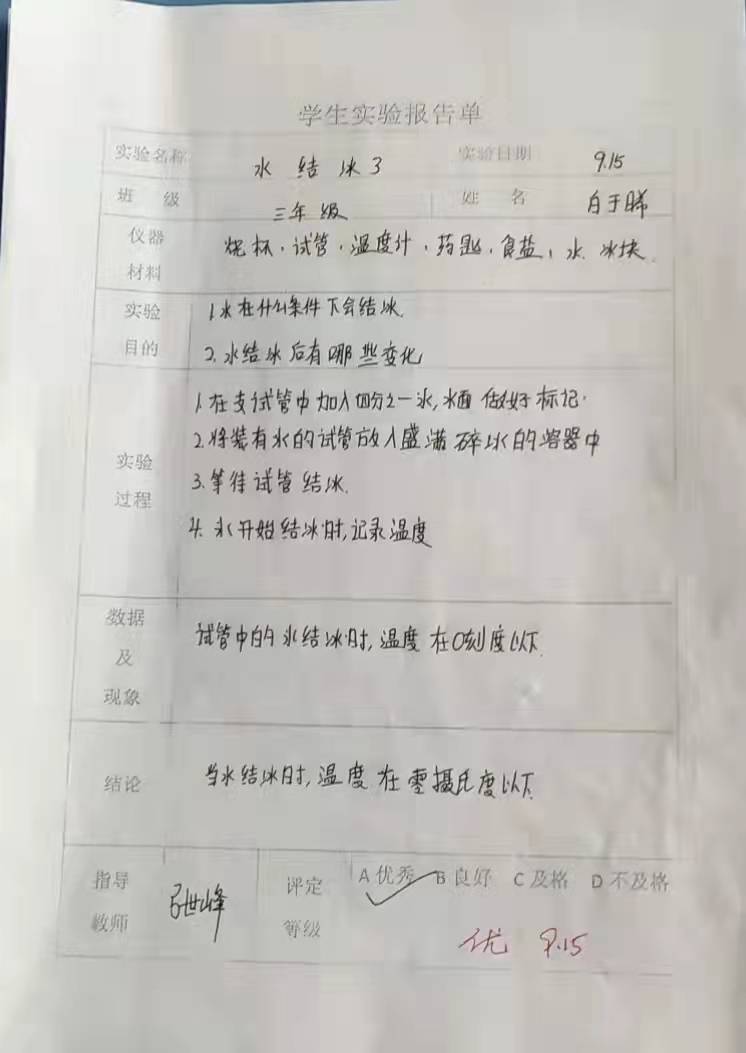 学生实验报告单
实验名称 水结冰3 实验日期 9.15
班级 三年级 姓名 白于晞
仪器材料 烧杯、试管、温度计、药匙、食盐、水、冰块
实验目的 1.水在什么条件下会结冰.
2.水结冰后有哪些变化
实验过程 1.在支试管中加入四分之一水,水面做好标记.
2.将装有水的试管放入盛满碎冰的容器中
3.等待试管结冰.
4.水开始结冰时,记录温度
数据及现象 试管中的水结冰时,温度在0刻度以下.
结论 当水结冰时,温度在零摄氏度以下.
指导教师 世峰 评定等级 A优秀 B良好 C及格 D不及格
优 9.15